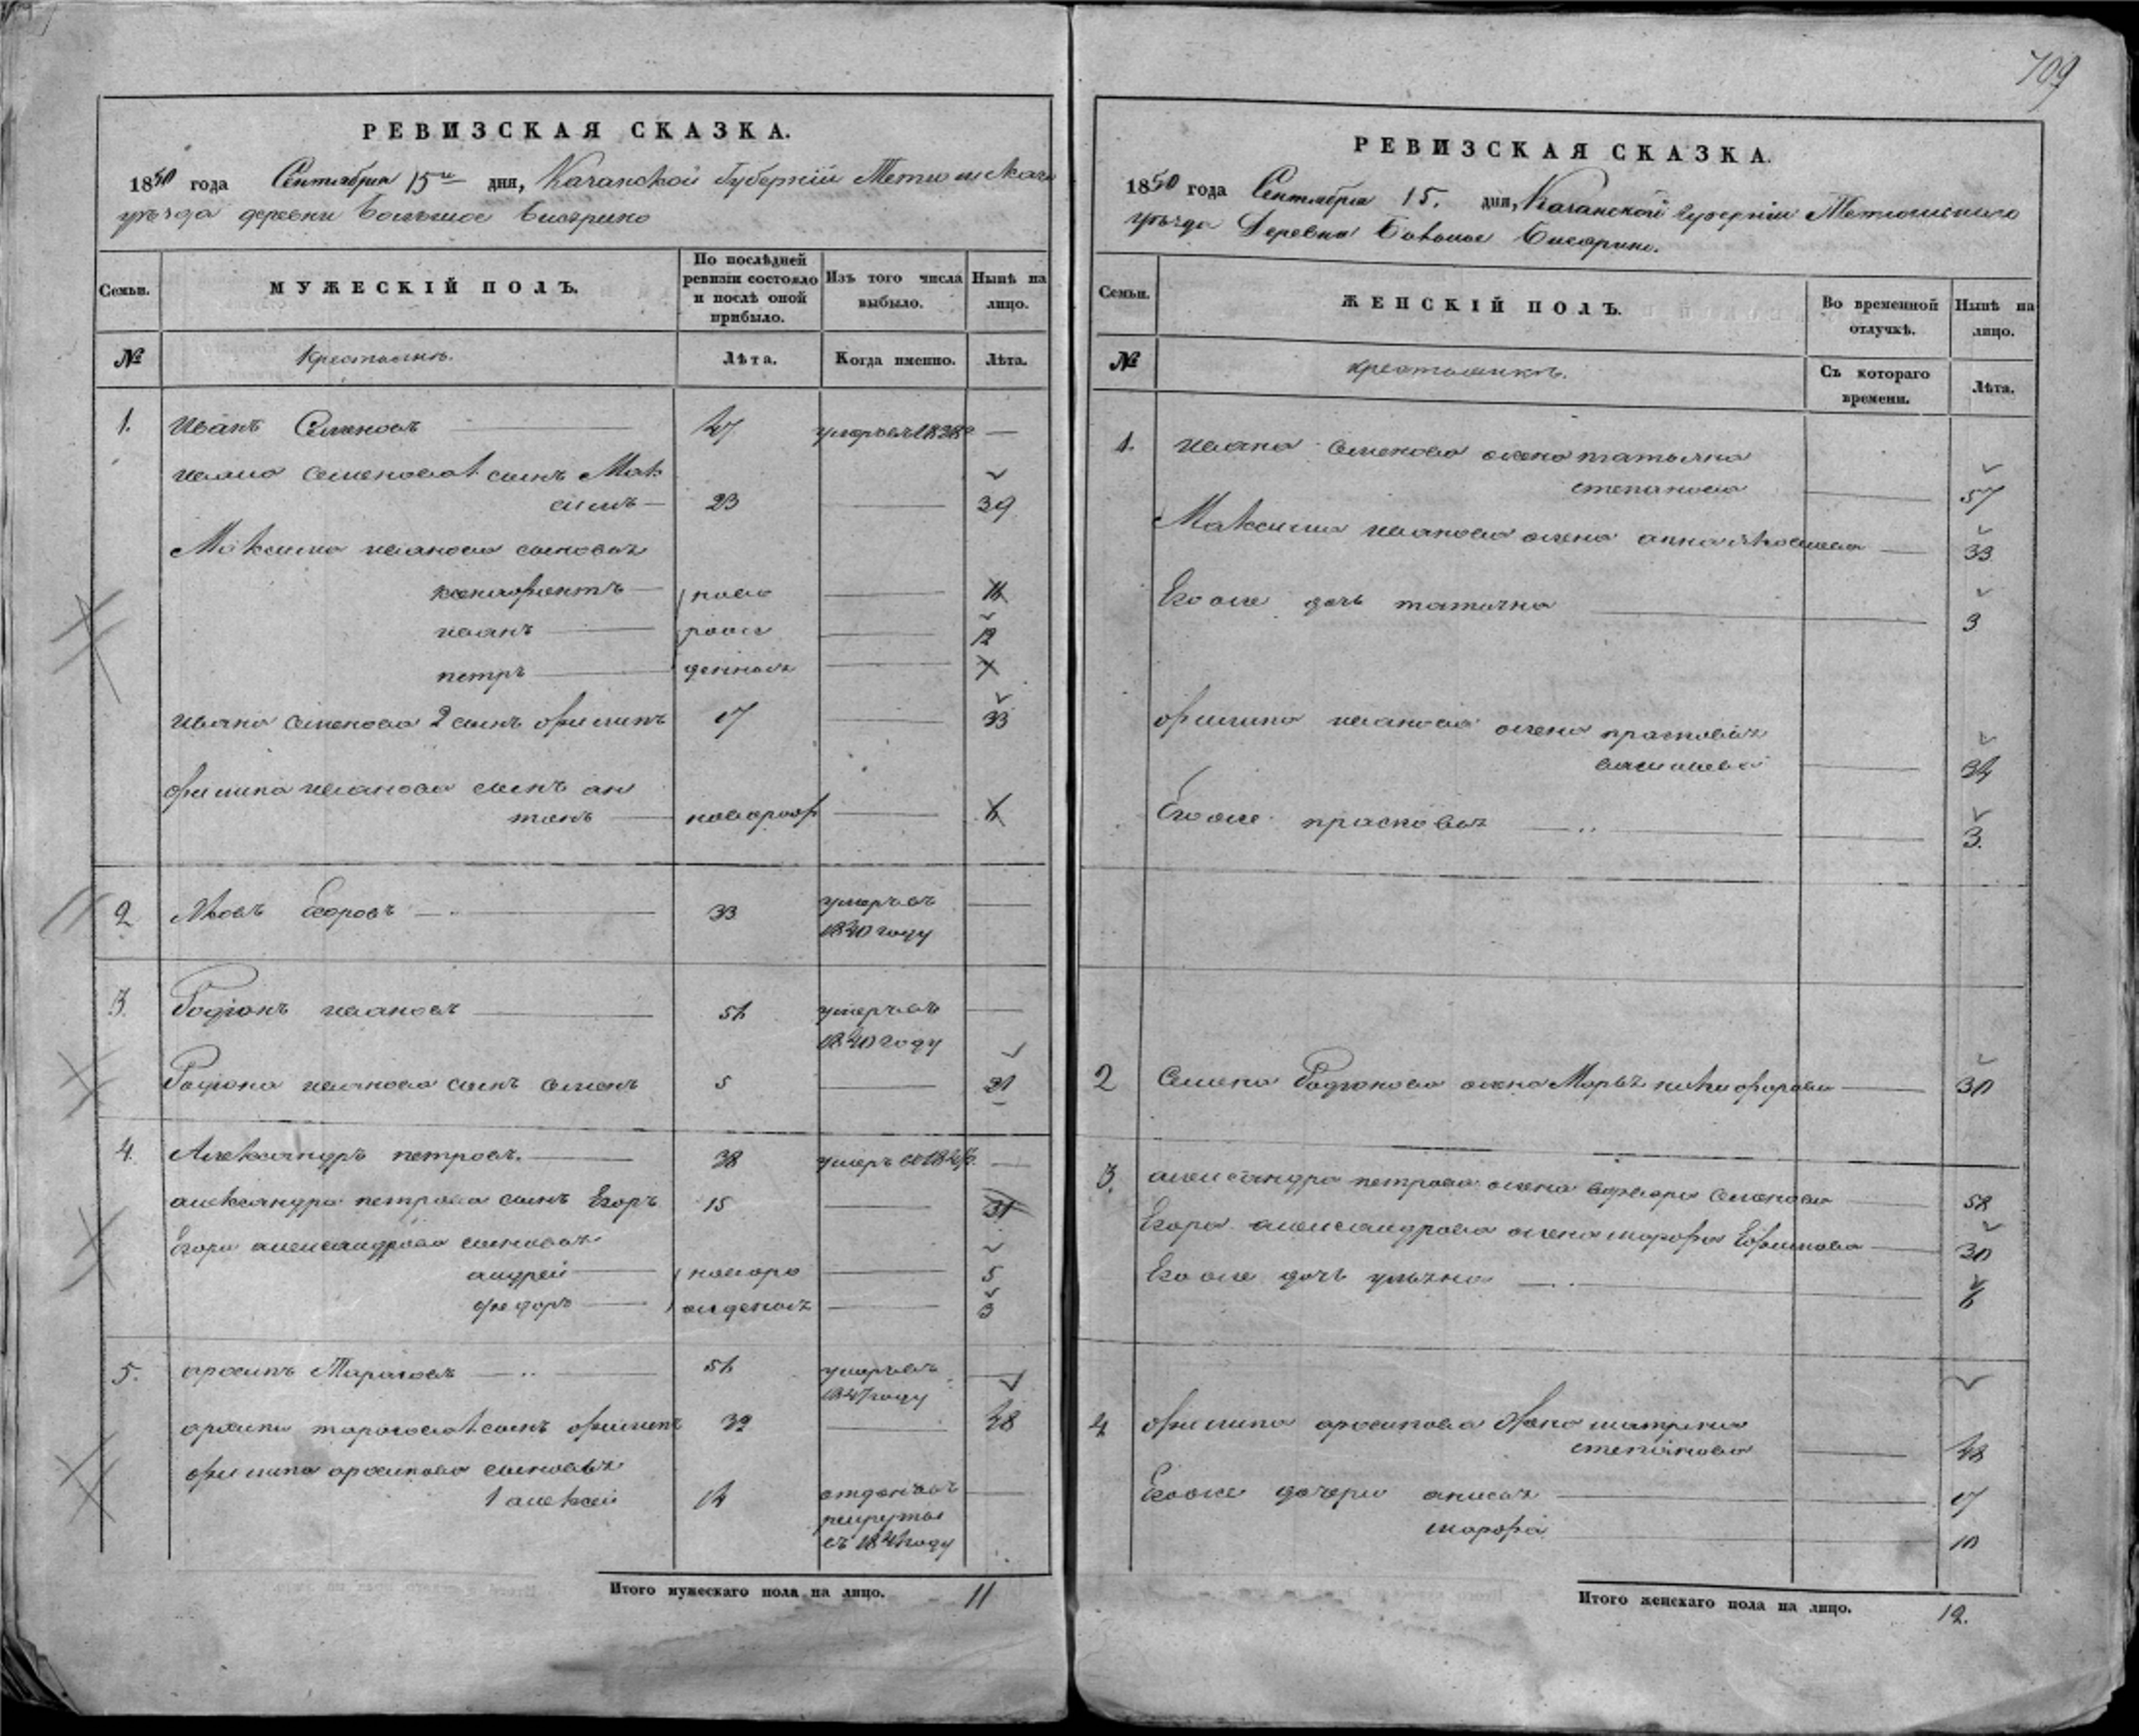 709
РЕВИЗСКАЯ СКАЗКА.
1850 года Сентября 15го дня, Казанской Губернии Тетюшскаго
уѣзда деревни Большое
Семьи.
МУЖЕСКІЙ ПОЛЪ.
По послѣдней ревизіи состояло и послѣ оной прибыло.
Изъ того числа выбыло.
Нынѣ на лицо.
№
Крестьянъ.
Лѣта.
Когда именно.
Лѣта.
1. Иванъ Семеновъ 47 умеръ въ 1838 —
ивана семенова 1 сынъ Мак
симъ — 23 — 39
Максима иванова сыновья
ксенофонтъ — ново — 14
иванъ — рож — 12
петръ — денныя —
ивана семенова 2 сынъ филипъ 17 — 33
филипа иванова сынъ ан
тонъ — новорож —
2 Яковъ 33 умеръ въ —
1840 году
3. Родіонъ ивановъ 54 умеръ въ —
1840 году
Родіона иванова сынъ семенъ 5 — 21
4. Александръ петровъ. 38 умеръ —
александра петрова сынъ Егоръ 15 — 31
Егора александрова сыновья
андрей — новоро — 5
федоръ — жденыя — 3
5. архипъ Тарасовъ 54 умеръ въ —
1847 году
архипа тарасова 1 сынъ филипъ 32 — 48
филипа архипова сыновья
1 алексей 14 отданъ въ —
рекруты
въ 1841 году
Итого мужескаго пола на лицо. 11
РЕВИЗСКАЯ СКАЗКА.
1850 года Сентября 15. дня, Казанской губерніи Тетюшскаго
уѣзда Деревни Большое
Семьи.
ЖЕНСКІЙ ПОЛЪ.
Во временной отлучкѣ.
Нынѣ на лицо.
№
Съ котораго времени.
Лѣта.
1. ивана семенова жена татьяна
степанова — 57
Максима иванова жена анна яковлева — 33
Его же дочь татьяна — 3
филипа иванова жена прасковья
васильева — 34
Его же прасковья — 3.
2 Семена Родіонова жена Марья никифорова — 30
3. александра петрова жена варвара семенова — 52
Егора александрова жена марфа Ефимова — 30
Его же дочь ульяна — 6
4 филипа архипова жена матрена
степанова — 48
Его же дочери анисья — 17
марфа — 10
Итого женскаго пола на лицо. 12.